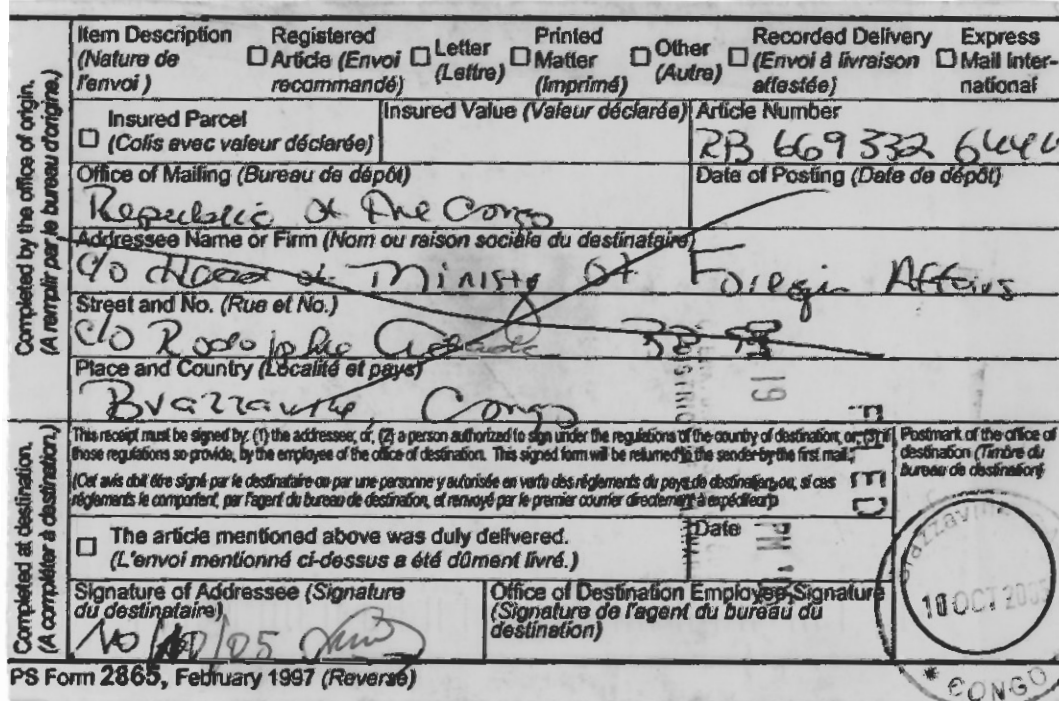 Completed by the office of origin.
(A remplir par le bureau d'origine.)
Item Description
(Nature de
l'envoi)
☐ Registered
Article (Envoi
recommandé)
☐ Letter
(Lettre)
☐ Printed
Matter
(Imprimé)
☐ Other
(Autre)
☐ Recorded Delivery
(Envoi à livraison
attestée)
☐ Express
Mail Inter-
national
☐ Insured Parcel
(Colis avec valeur déclarée)
Insured Value (Valeur déclarée)
Article Number
RB 669 332 644
Office of Mailing (Bureau de dépôt)
Republic of the Congo
Date of Posting (Date de dépôt)
Addressee Name or Firm (Nom ou raison sociale du destinataire)
c/o Head of Ministry of Foreign Affairs
Street and No. (Rue et No.)
c/o Rodolphe
Place and Country (Localité et pays)
Brazzaville Congo
Completed at destination.
(A compléter à destination.)
This receipt must be signed by: (1) the addressee; or, (2) a person authorized to sign under the regulations of the country of destination; or, (3) if
those regulations so provide, by the employee of the office of destination. This signed form will be returned to the sender by the first mail.
(Cet avis doit être signé par le destinataire ou par une personne y autorisée en vertu des règlements du pays de destination, ou, si ces
règlements le comportent, par l'agent du bureau de destination, et renvoyé par le premier courrier directement à
☐ The article mentioned above was duly delivered.
(L'envoi mentionné ci-dessus a été dûment livré.)
Date
Signature of Addressee (Signature
du destinataire)
10/10/05
Office of Destination Employee Signature
(Signature de l'agent du bureau du
destination)
Postmark of the office of
destination (Timbre du
bureau de destination)
Brazzaville
10 OCT 2005
* CONGO
FILED
19
PM
PS Form 2865, February 1997 (Reverse)